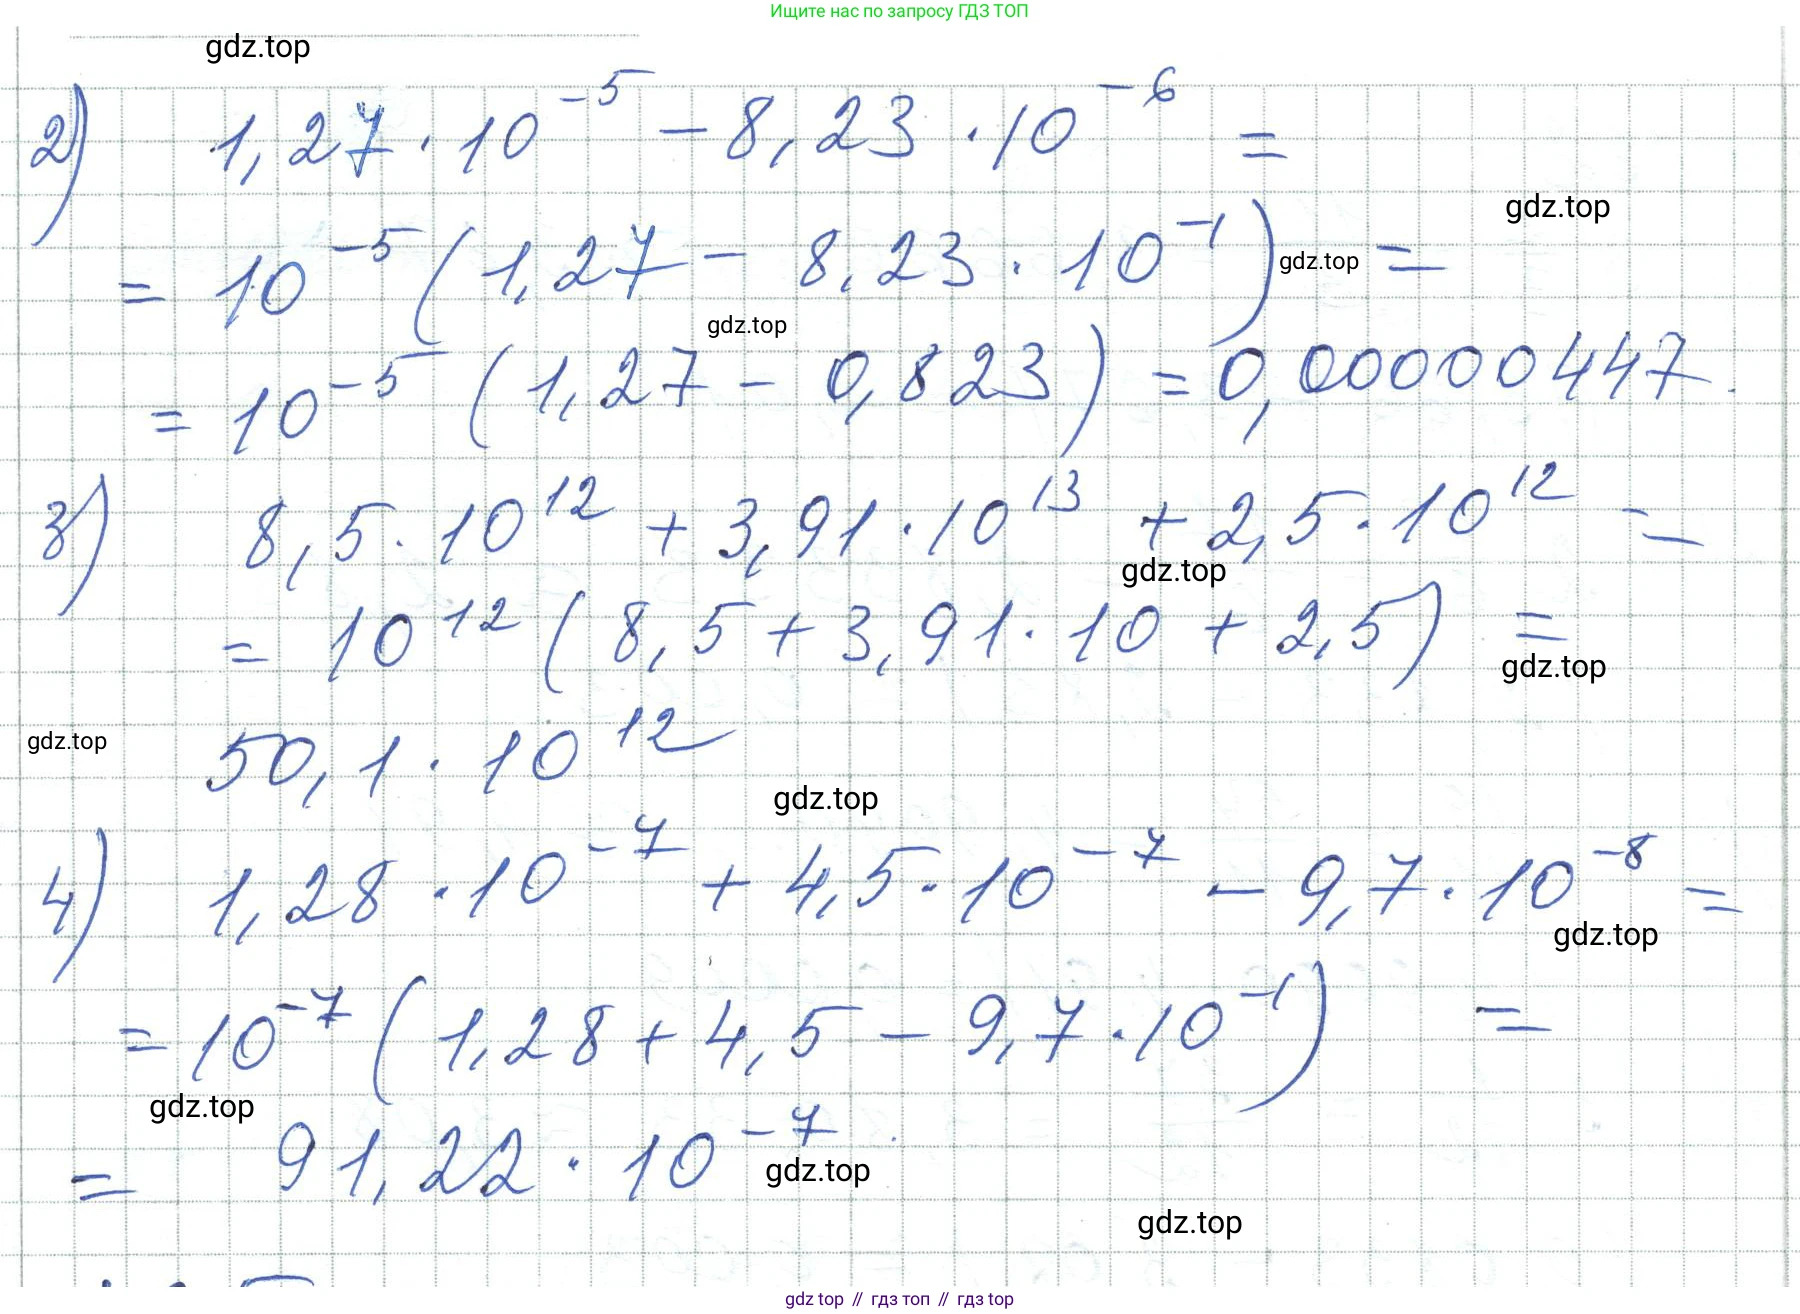 Ищите нас по запросу ГДЗ ТОП
gdz.top
2) 1,27 · 10^{-5} - 8,23 · 10^{-6} =
gdz.top
= 10^{-5} (1,27 - 8,23 · 10^{-1}) =
gdz.top
gdz.top
= 10^{-5} (1,27 - 0,823) = 0,00000447.
3) 8,5 · 10^{12} + 3,91 · 10^{13} + 2,5 · 10^{12} =
gdz.top
= 10^{12} (8,5 + 3,91 · 10 + 2,5) =
gdz.top
gdz.top
50,1 · 10^{12}
gdz.top
4) 1,28 · 10^{-7} + 4,5 · 10^{-7} - 9,7 · 10^{-8} =
gdz.top
= 10^{-7} (1,28 + 4,5 - 9,7 · 10^{-1}) =
gdz.top
= 91,22 · 10^{-7}.
gdz.top
gdz.top
gdz top // гдз топ // гдз top